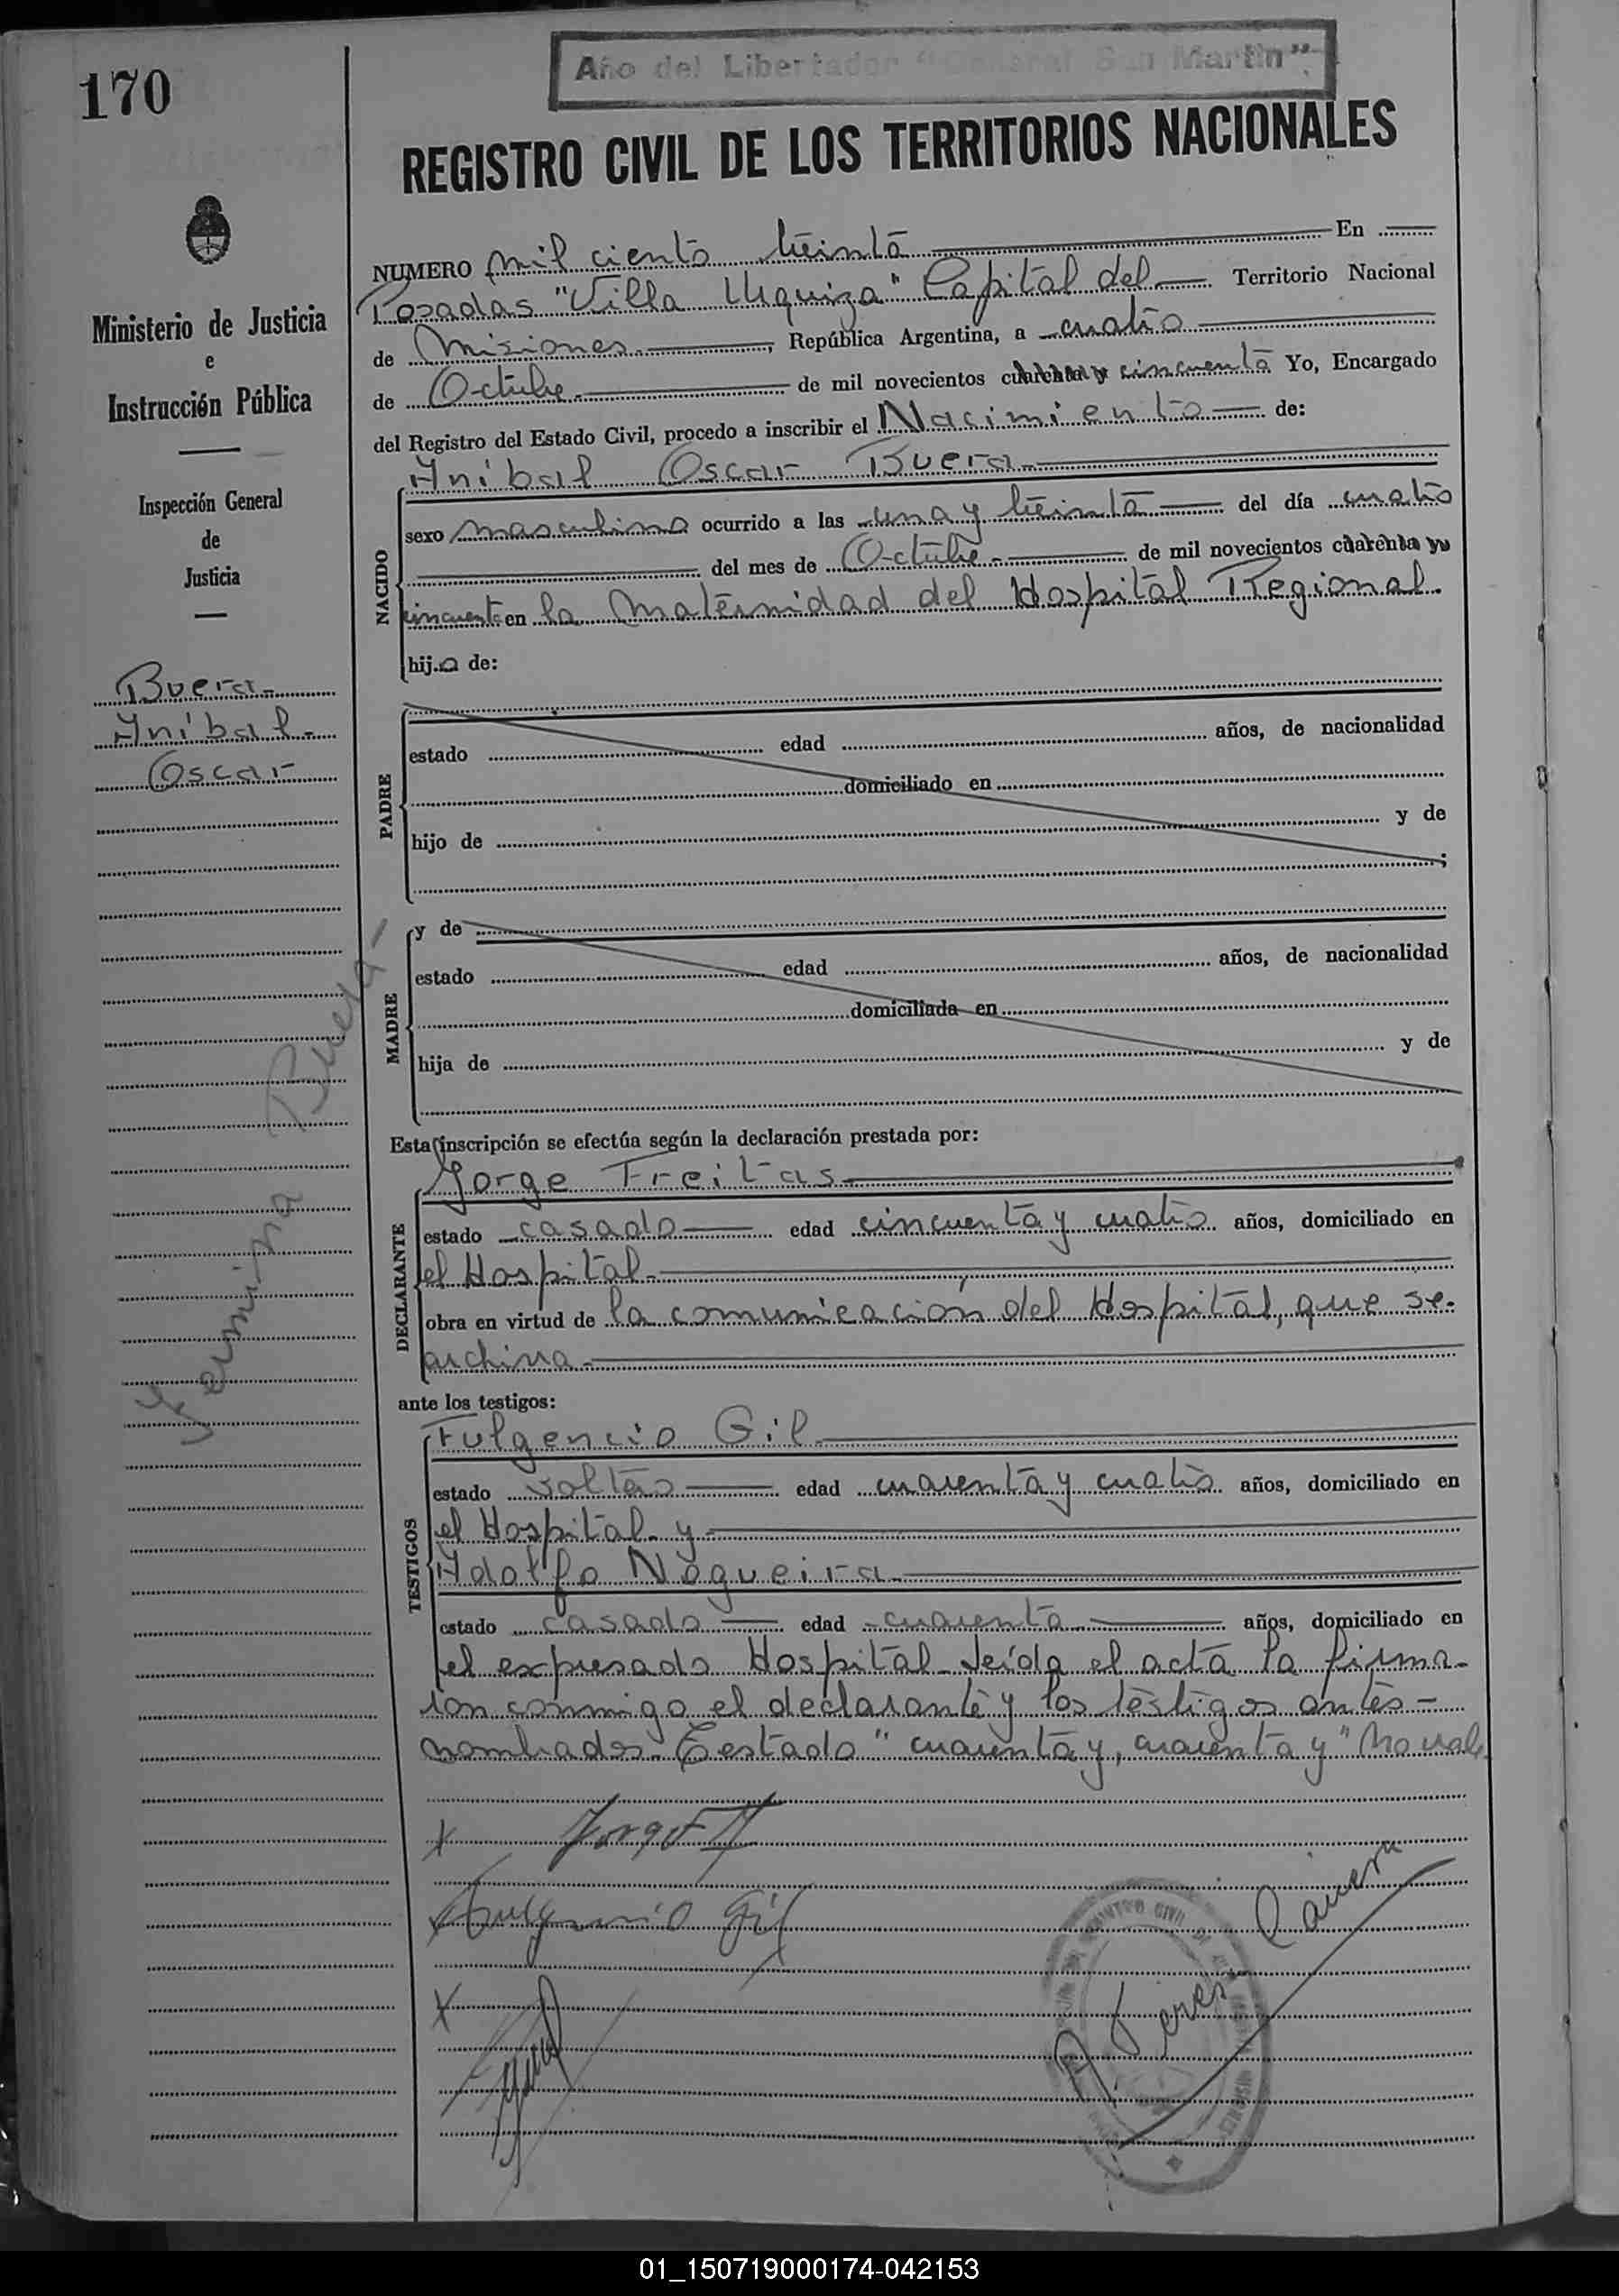 170
Año del Libertador "General San Martín".
REGISTRO CIVIL DE LOS TERRITORIOS NACIONALES
Ministerio de Justicia
e
Instrucción Pública
Inspección General
de
Justicia
Buera
Aníbal
Oscar
Buera
NUMERO mil ciento treinta En
Posadas "Villa Urquiza" Capital del Territorio Nacional
de Misiones, República Argentina, a cuatro
de Octubre de mil novecientos cuarenta y cincuenta Yo, Encargado
del Registro del Estado Civil, procedo a inscribir el Nacimiento de:
NACIDO
Aníbal Oscar Buera
sexo masculino ocurrido a las una y treinta del día cuatro
del mes de Octubre de mil novecientos cuarenta y
cincuenta en la Maternidad del Hospital Regional.
hijo de:
PADRE
estado edad años, de nacionalidad
domiciliado en
hijo de y de
;
MADRE
y de
estado edad años, de nacionalidad
domiciliada en
hija de y de
Esta inscripción se efectúa según la declaración prestada por:
DECLARANTE
Jorge Freitas
estado casado edad cincuenta y cuatro años, domiciliado en
el Hospital
obra en virtud de la comunicación del Hospital, que se
archiva
ante los testigos:
TESTIGOS
Fulgencio Gil
estado soltero edad cuarenta y cuatro años, domiciliado en
el Hospital y
Adolfo Nogueira
estado casado edad cuarenta años, domiciliado en
el expresado Hospital. Leída el acta la firma-
ron conmigo el declarante y los testigos antes
nombrados. Testado "cuarenta y, cuarenta y" No vale
Fulgencio Gil
A. Perez
01_150719000174-042153